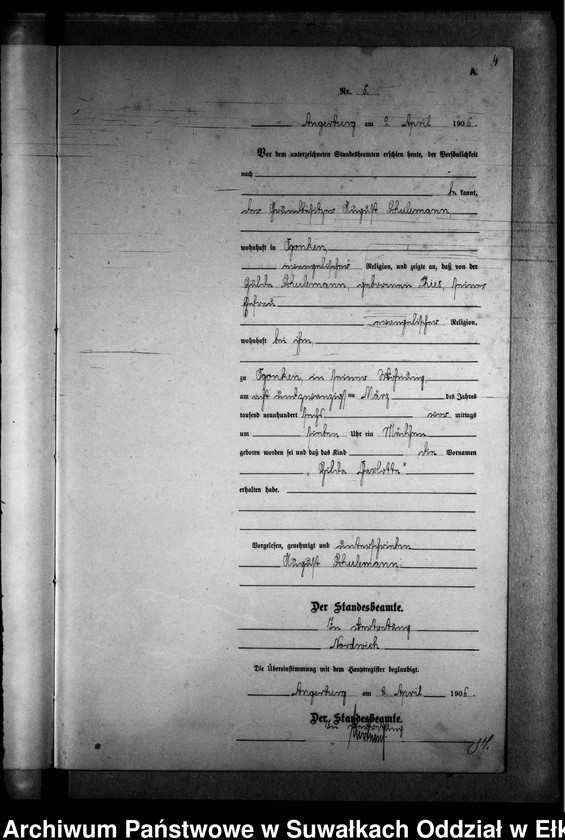 4
A.
Nr. 5.
Angerburg am 2. April 1906.
Vor dem unterzeichneten Standesbeamten erschien heute, der Persönlichkeit
nach
be kannt,
der Grundbesitzer August Schulemann,
wohnhaft in
evangelischer Religion, und zeigte an, daß von der
Hulda Schulemann, geborenen seiner
Ehefrau
evangelischer Religion,
wohnhaft bei ihm
zu in seiner Wohnung
am acht und zwanzigsten März des Jahres
tausend neunhundert sechs vor mittags
um sieben Uhr ein Mädchen
geboren worden sei und daß das Kind die Vornamen
"Hilda Charlotte"
erhalten habe.
Vorgelesen, genehmigt und unterschrieben
August Schulemann.
Der Standesbeamte.
In Vertretung
Nordwich
Die Übereinstimmung mit dem Hauptregister beglaubigt.
Angerburg am 2. April 1906.
Der Standesbeamte.
In Vertretung
Archiwum Państwowe w Suwałkach Oddział w Ełk